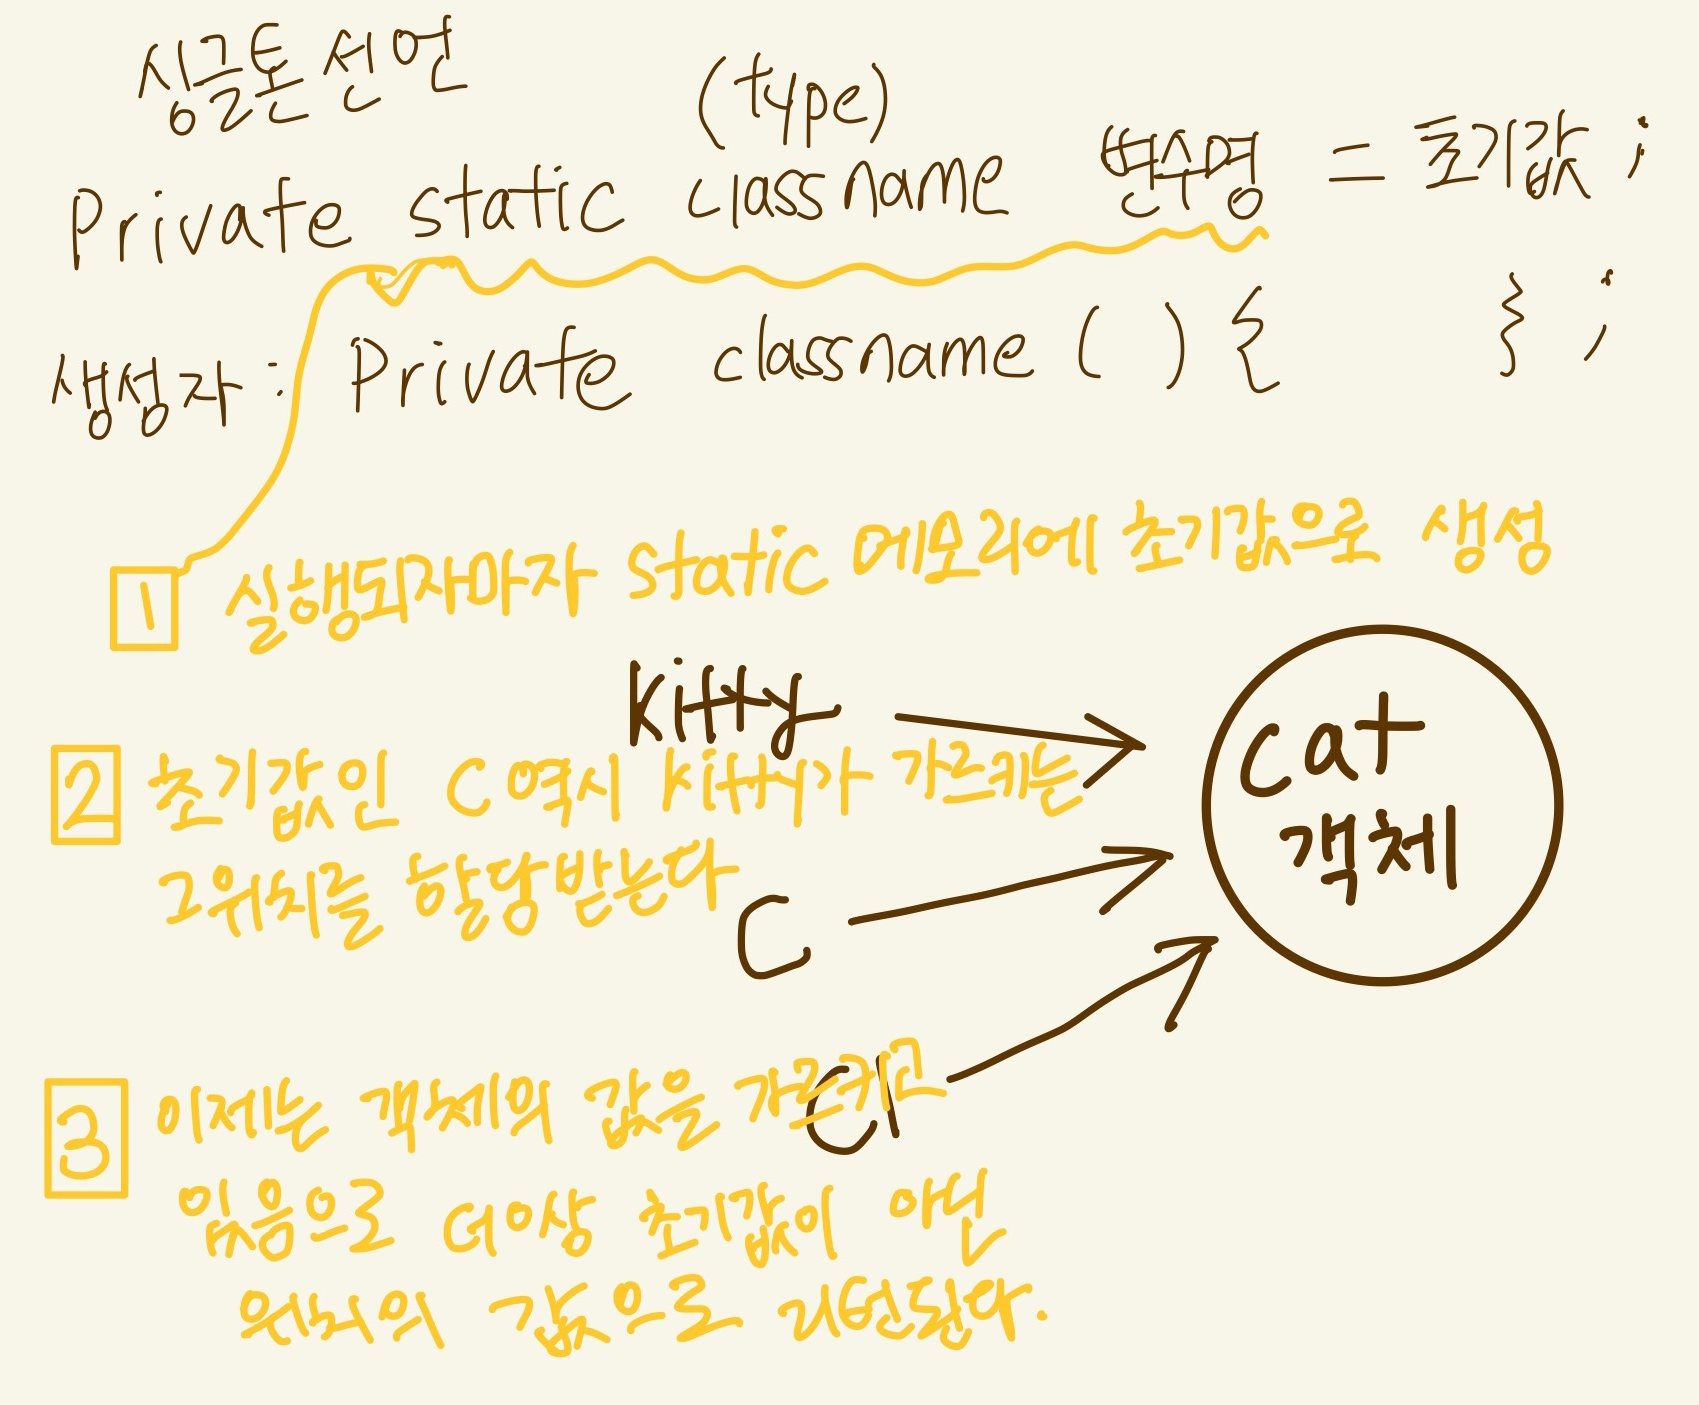 싱글톤 선언
(type)
Private static classname 변수명 = 초기값 ;
생성자 : Private classname ( ) { } ;
1 실행되자마자 static 메모리에 초기값으로 생성
kitty
cat
객체
2 초기값인 C 역시 kitty가 가르키는
그위치를 할당받는다
C
3 이제는 객체의 값을 가르키고
C1
있음으로 더이상 초기값이 아닌
위치의 값으로 리턴된다.